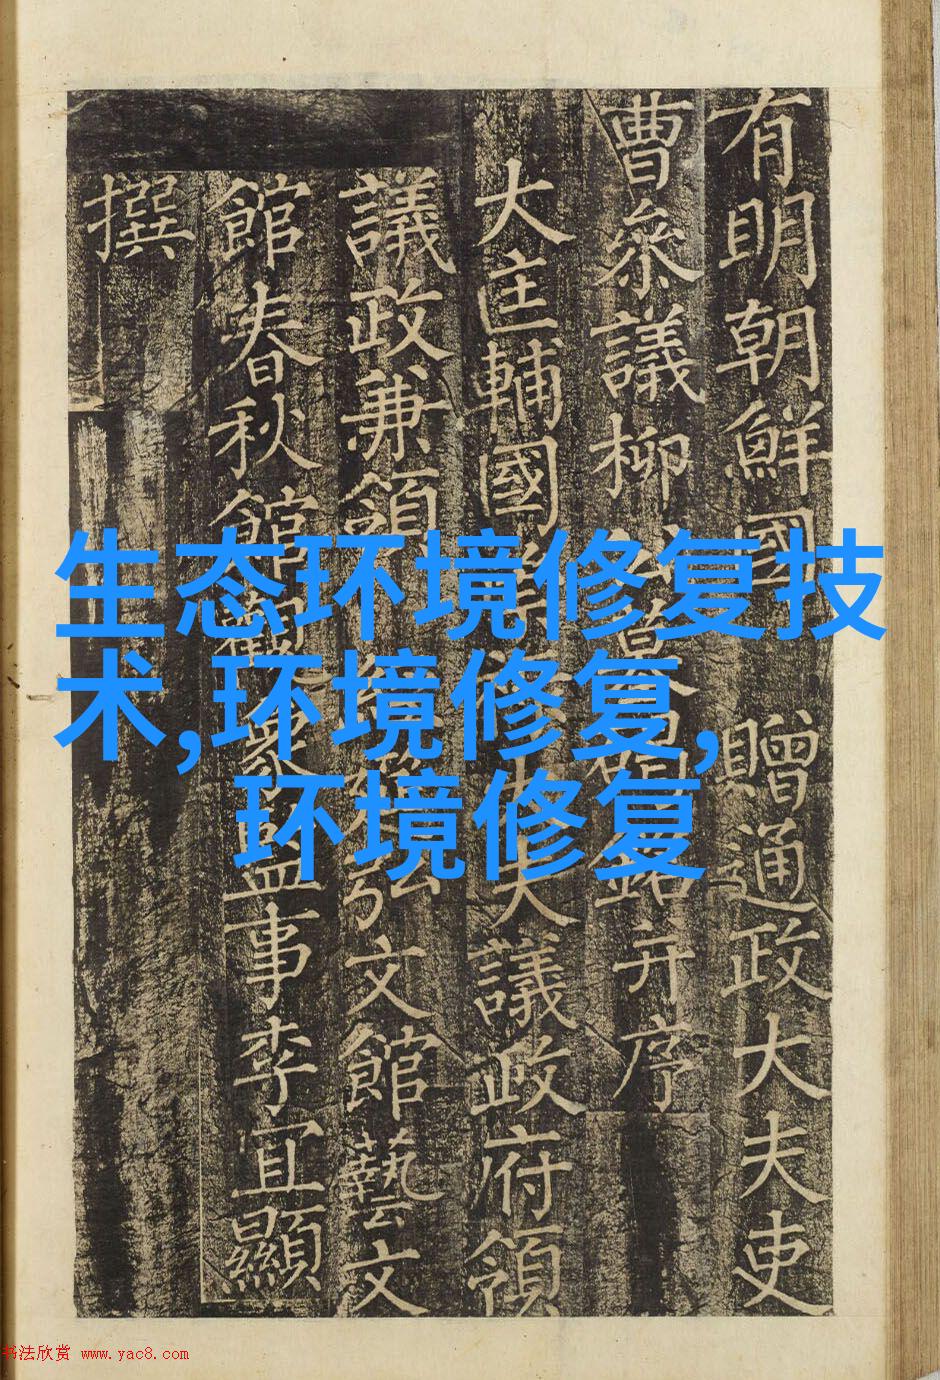 有明朝鮮國 贈通政大夫吏
曹叅議柳公墓碣銘并序
大匡輔國大夫議政府領
議政兼領經筵弘文館藝文
館春秋館觀象監事李宜顯
撰
生态环境修复技
术,环境修复,
环境修复
书法欣赏 www.yac8.com